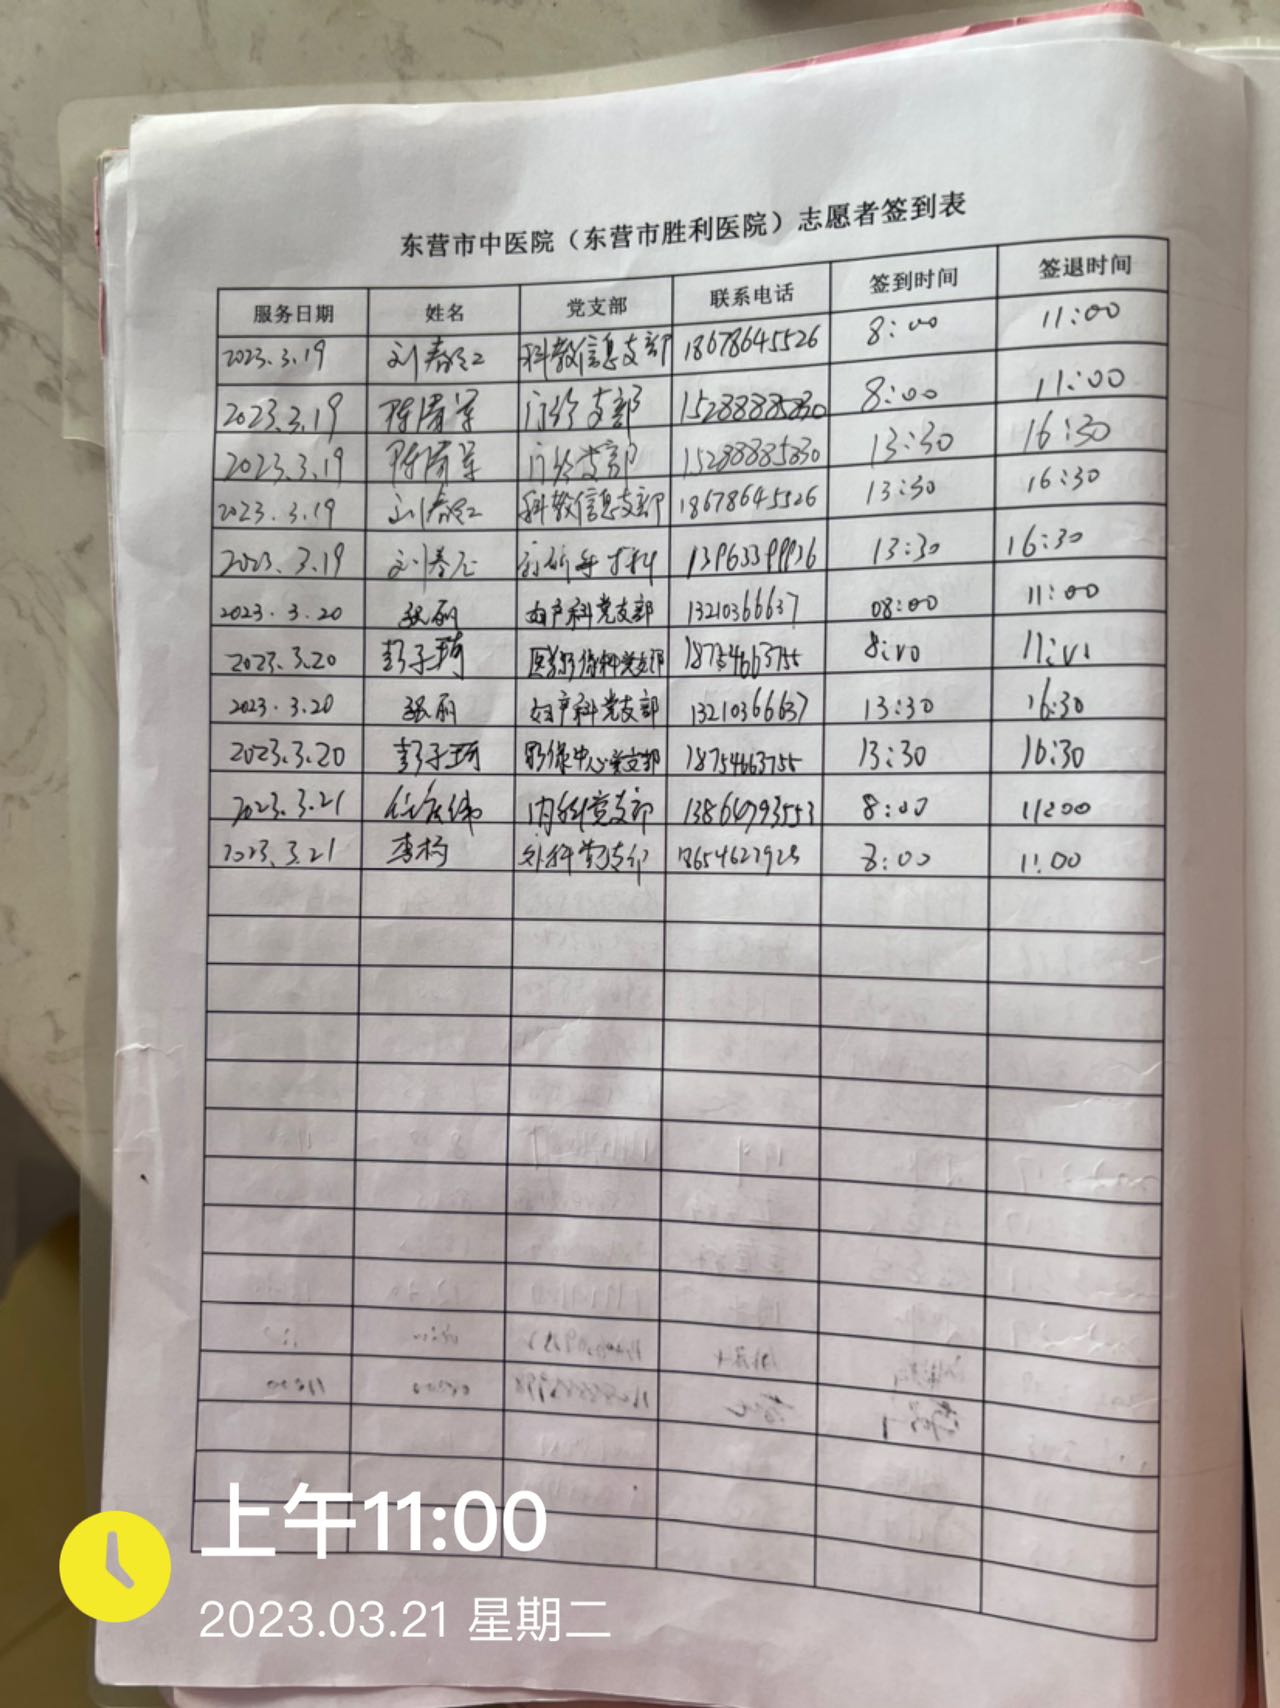 东营市中医院（东营市胜利医院）志愿者签到表
服务日期 姓名 党支部 联系电话 签到时间 签退时间
2023.3.19 刘春红 科教信息支部 18678645526 8:00 11:00
2023.3.19 门诊支部 15288885830 8:00 11:00
2023.3.19 门诊支部 15288885830 13:30 16:30
2023.3.19 刘春红 科教信息支部 18678645526 13:30 16:30
2023.3.19 刘春元 13963399936 13:30 16:30
2023.3.20 张丽 妇产科党支部 13210366637 08:00 11:00
2023.3.20 彭子琦 党支部 18754663755 8:00 11:01
2023.3.20 张丽 妇产科党支部 13210366637 13:30 16:30
2023.3.20 彭子琦 影像中心党支部 18754663755 13:30 16:30
2023.3.21 内科党支部 13864793553 8:00 11:00
2023.3.21 李杨 外科党支部 18654627925 8:00 11:00
上午11:00
2023.03.21 星期二